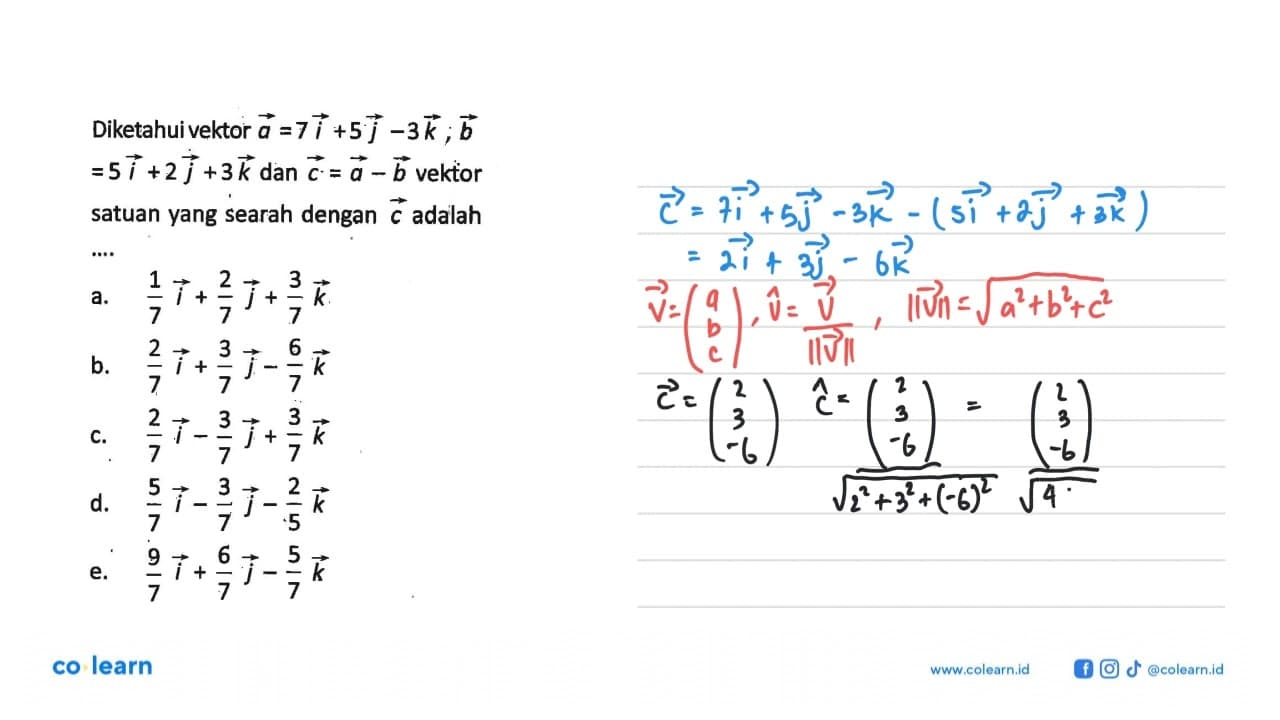 Diketahui vektor a⃗ = 7i⃗ + 5j⃗ − 3k⃗ ; b⃗
= 5i⃗ + 2j⃗ + 3k⃗ dan c⃗ = a⃗ − b⃗ vektor
satuan yang searah dengan c⃗ adalah
....
a. 1/7 i⃗ + 2/7 j⃗ + 3/7 k⃗
b. 2/7 i⃗ + 3/7 j⃗ − 6/7 k⃗
c. 2/7 i⃗ − 3/7 j⃗ + 3/7 k⃗
d. 5/7 i⃗ − 3/7 j⃗ − 2/5 k⃗
e. 9/7 i⃗ + 6/7 j⃗ − 5/7 k⃗
c⃗ = 7i⃗ + 5j⃗ − 3k⃗ − (5i⃗ + 2j⃗ + 3k⃗)
= 2i⃗ + 3j⃗ − 6k⃗
v⃗ = (a b c), v̂ = v⃗/||v⃗||, ||v⃗|| = √(a² + b² + c²)
c⃗ = (2 3 −6) ĉ = (2 3 −6)/√(2² + 3² + (−6)²) = (2 3 −6)/√4
co learn
www.colearn.id
@colearn.id